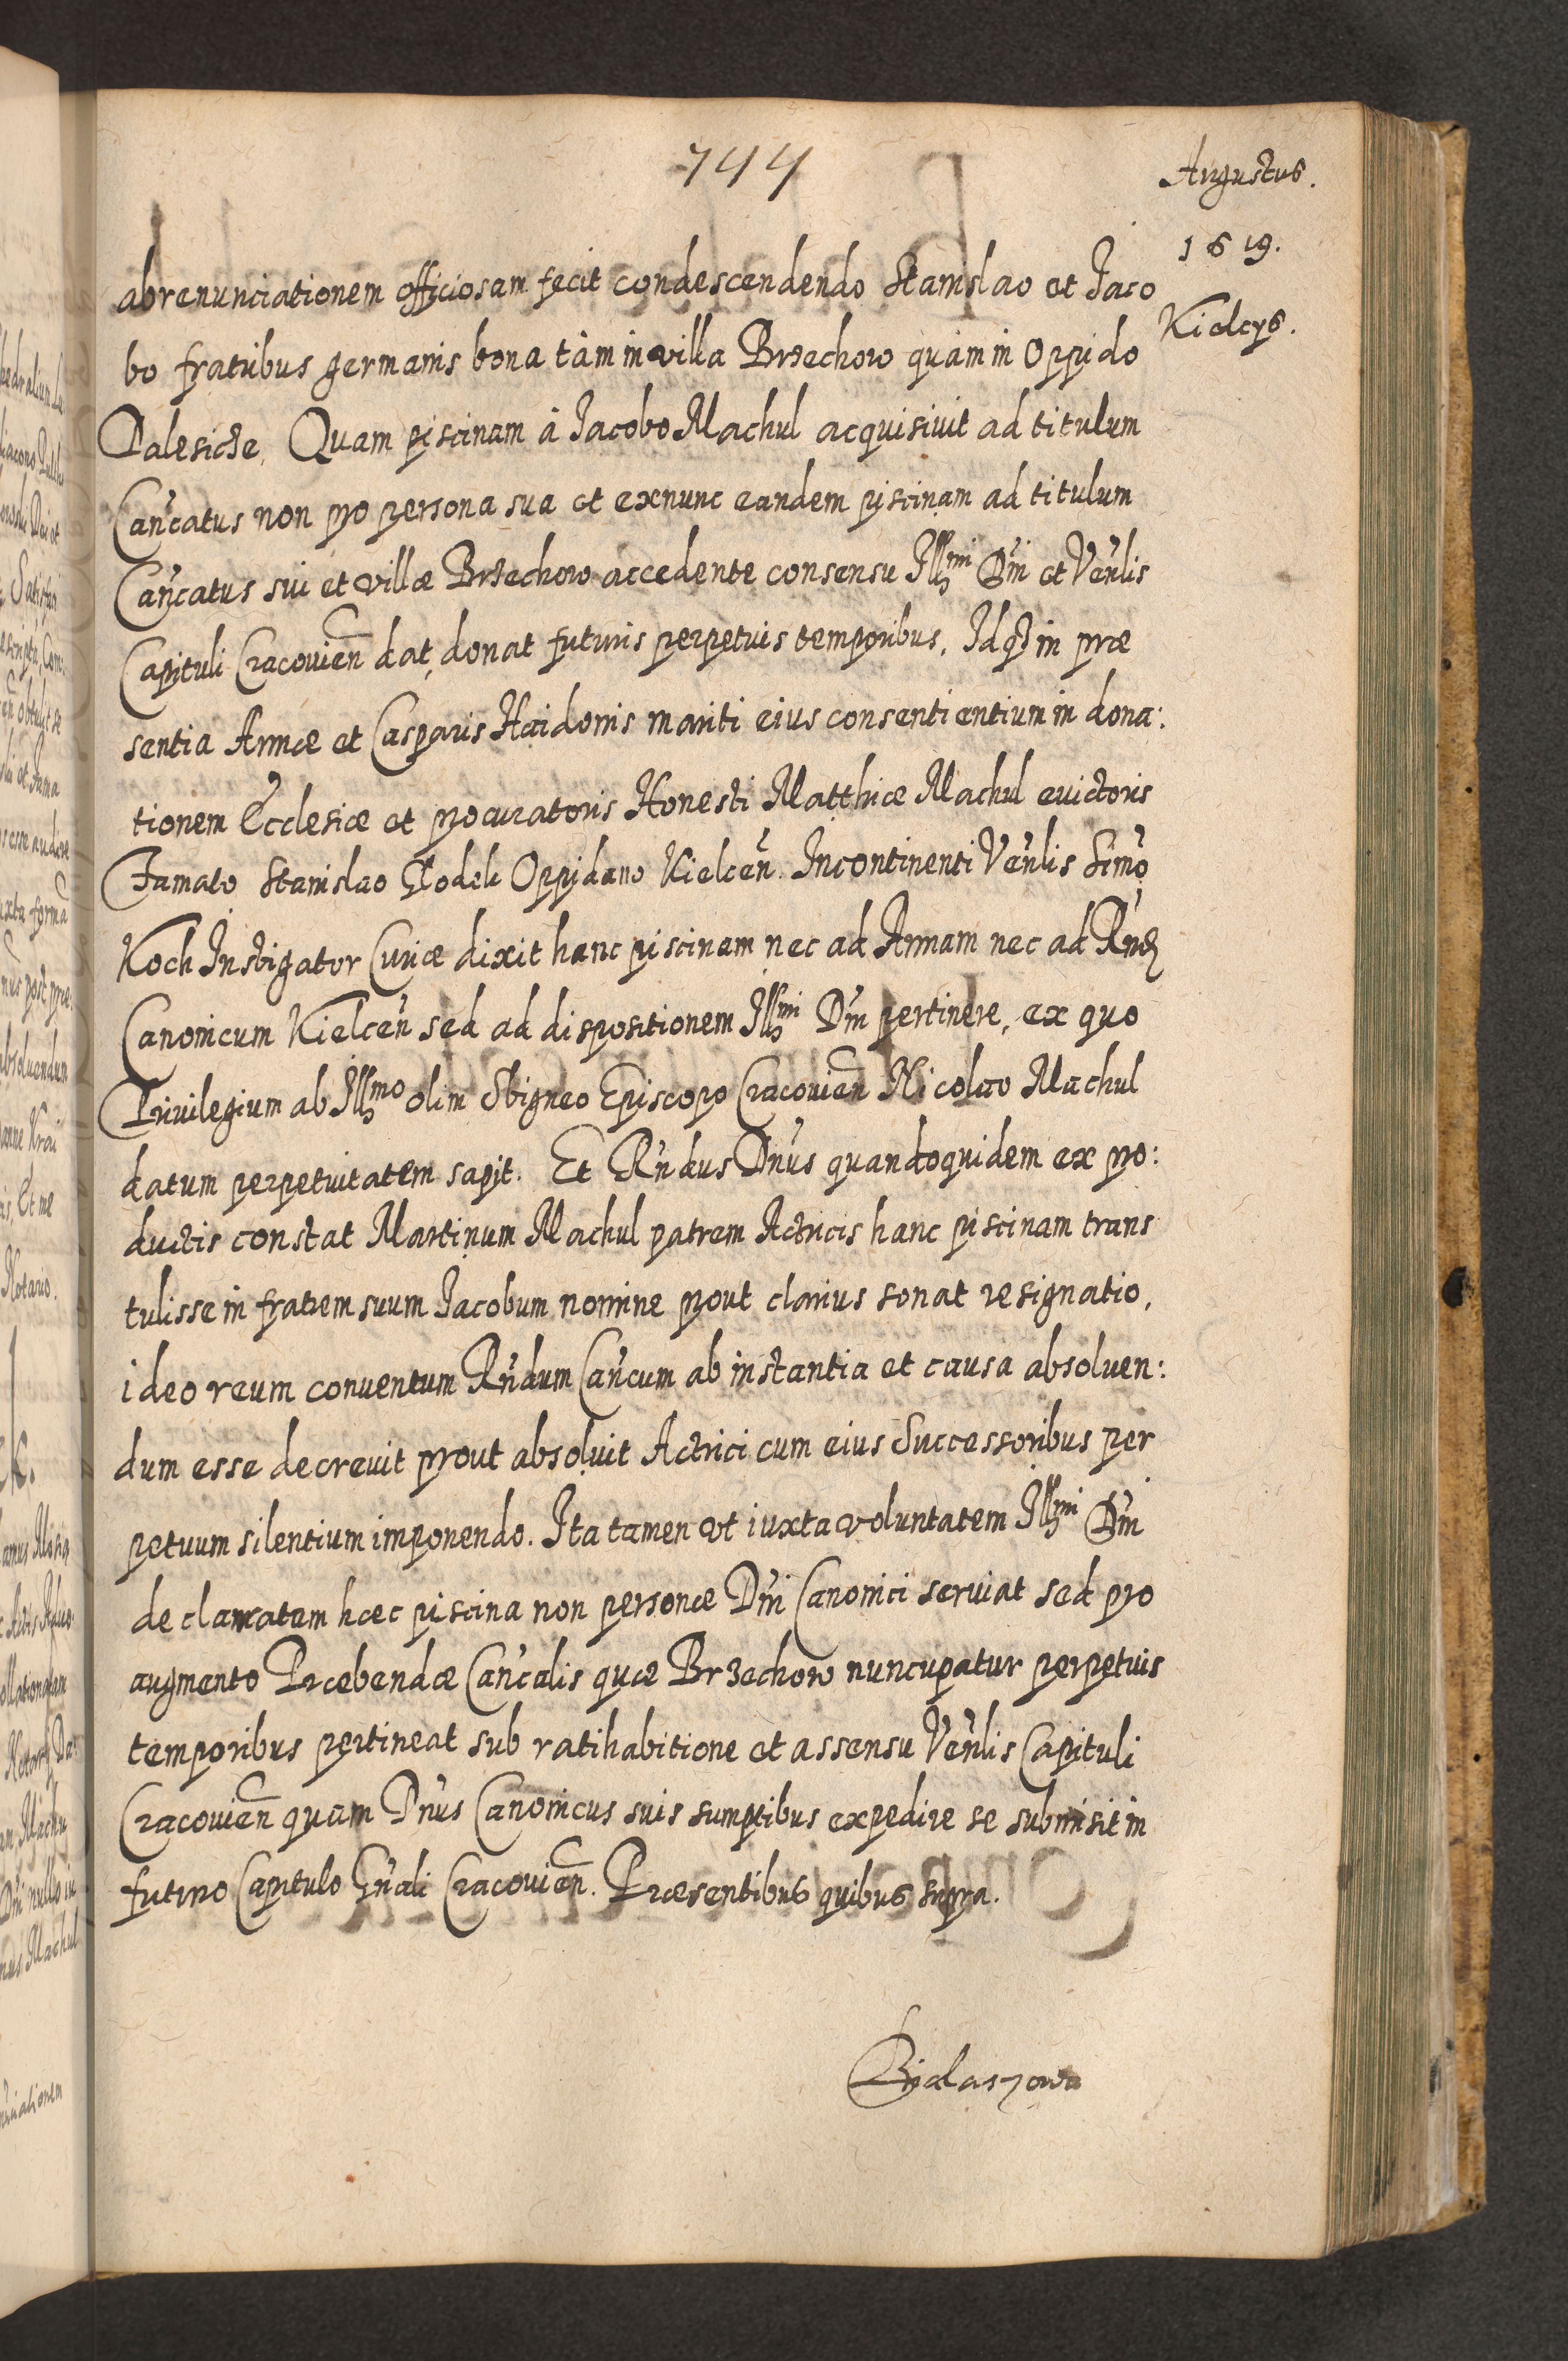 744
Augustus.
1619.
Kielcys.
abrenunciationem officiosam fecit condescendendo Stanislao et Jaco
bo fratribus germanis bona tàm in villa Brzechow quàm in Oppido
Dalesicze. Quam piscinam à Jacobo Machul acquisivit ad titulum
Can̄catus non pro persona sua et exnunc eandem piscinam ad titulum
Can̄catus sui et villæ Brzechow accedente consensu Illmi Dni et Venlis
Capituli Cracovien̄ dat, donat futuris perpetuis temporibus. Idq in præ
sentia Annæ et Casparis Haidonis mariti eius consentientium in dona:
tionem Ecclesiæ et procuratoris Honesti Matthiæ Machul evictoris
Famato Stanislao Oppidano Kielcen̄. Incontinenti Venlis Simo
Koch Instigator Curiæ dixit hanc piscinam nec ad Annam nec ad Rnd
Canonicum Kielcen̄ sed ad dispositionem Illmi Dni pertinere, ex quo
Privilegium ab Illmo olim Sbigneo Episcopo Cracovien̄ Nicolao Machul
datum perpetuitatem sapit. Et Rndus Dnus quandoquidem ex pro:
ductis constat Martinum Machul patrem Actricis hanc piscinam trans
tulisse in fratrem suum Jacobum nomine prout clarius sonat resignatio,
ideo reum conventum Rndum Can̄cum ab instantia et causa absolven:
dum esse decrevit prout absolvit Actrici cum eius Successoribus per
petuum silentium imponendo. Ita tamen vt iuxta voluntatem Illmi Dni
declaratam hæc piscina non personæ Dni Canonici serviat sed pro
augmento Præbendæ Can̄calis quæ Brzechow nuncupatur perpetuis
temporibus pertineat sub ratihabitione et assensu Venlis Capituli
Cracovien̄ quam Dnus Canonicus suis sumptibus expedire se submisit in
futuro Capitulo Gnāli Cracovien̄. Præsentibus quibus supra.